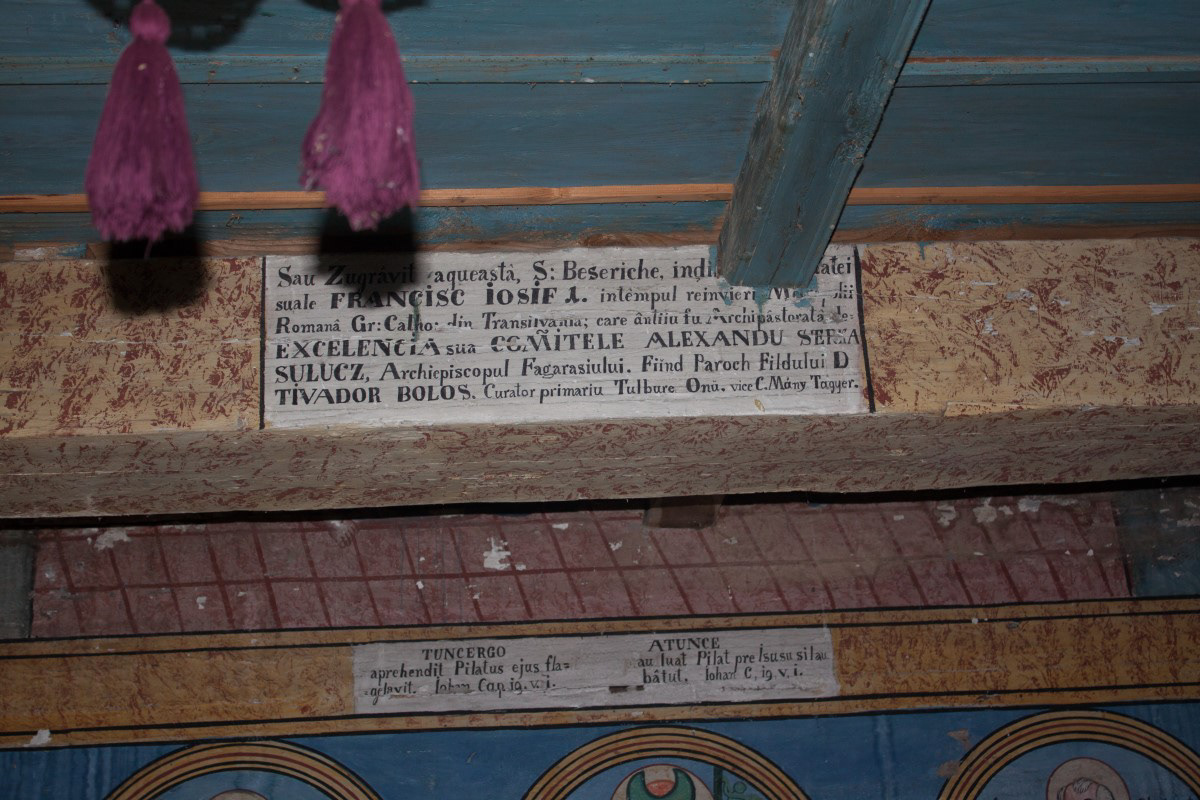 Sau Zugrâvit aqueastâ, S: Beseriche,
suale FRANCISC IOSIF 1. intêmpul reinvieri
Romanâ Gr: Catho: din Transilvania; care ântiiu fu Archipâstoratâ
EXCELENCIA sua COMITELE ALEXANDU
SULUCZ, Archiepiscopul Fagarasiului. Fiind Paroch Fildului D
TIVADOR BOLOS. Curator primariu Tulbure Onû. vice C. Mány Tagyer.
TUNCERGO
aprehendit Pilatus ejus fla=
=gelavit. Iohan Cap. 19. v. 1.
ATUNCE
au luat Pilat pre Isusu si lau
bâtut. Iohan C. 19. v. 1.